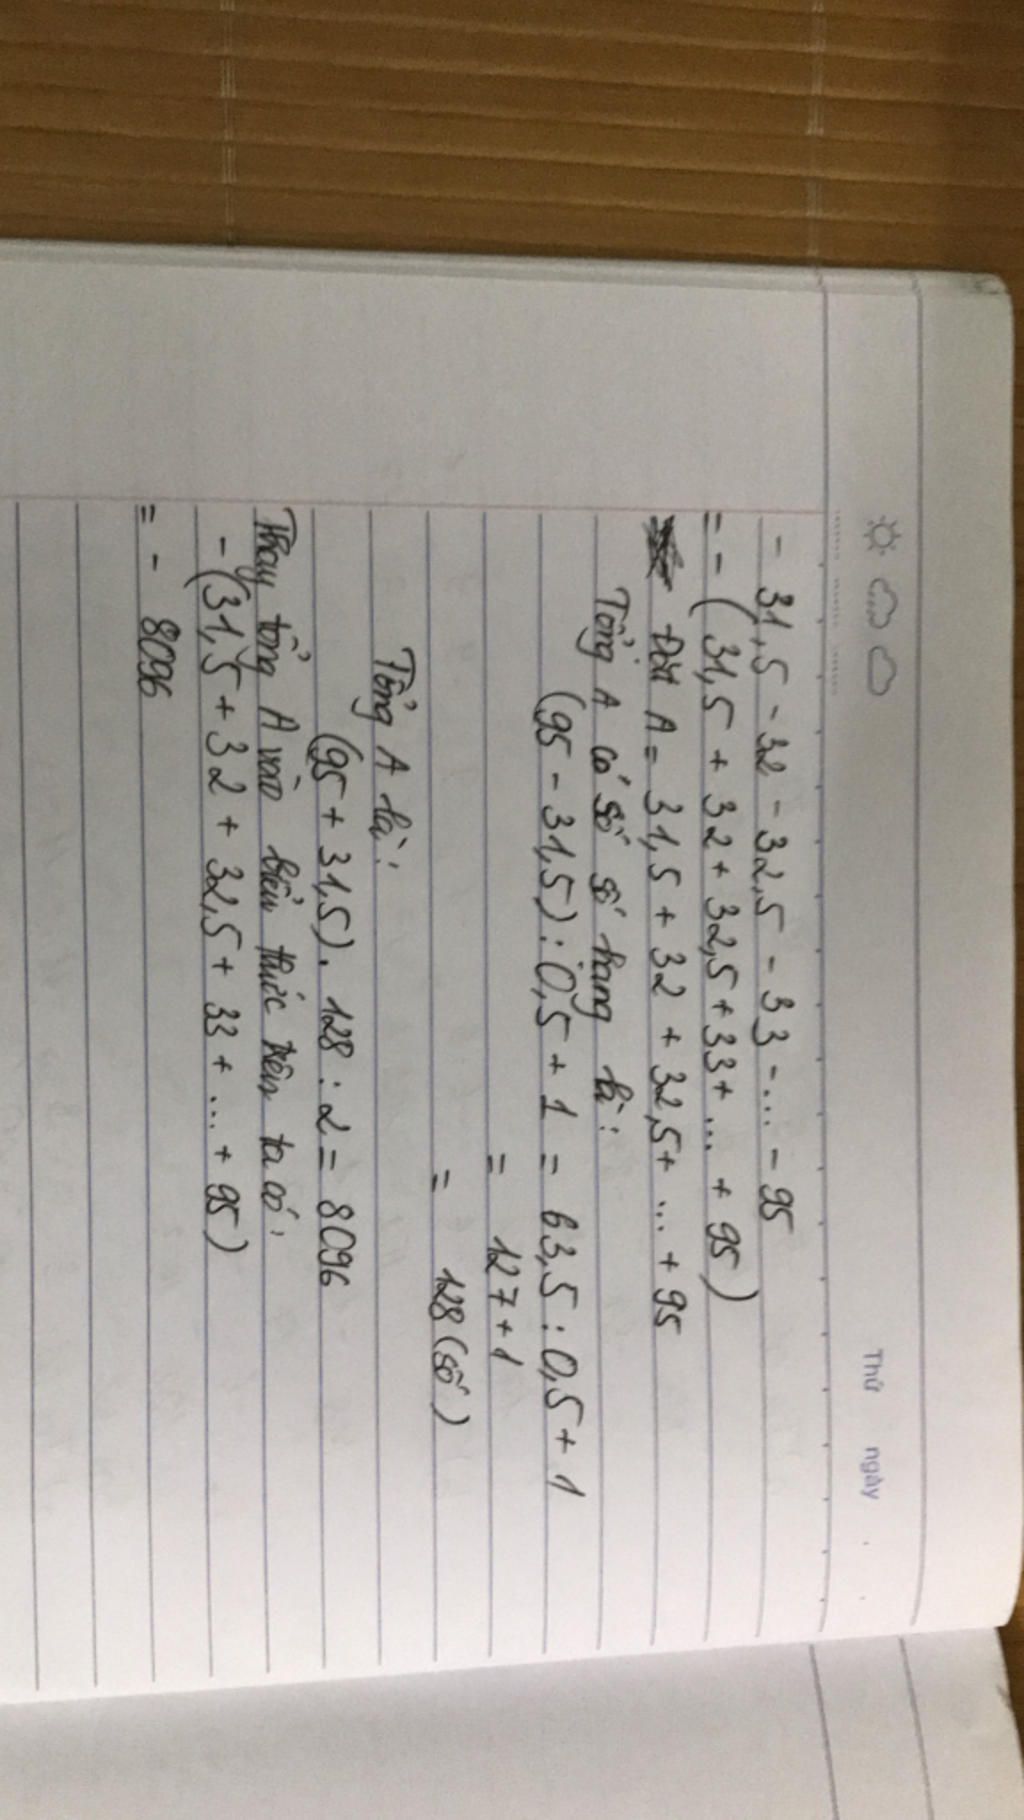 Thứ ngày
- 31,5 - 32 - 32,5 - 33 - ... - 95
= - ( 31,5 + 32 + 32,5 + 33 + ... + 95 )
Đặt A = 31,5 + 32 + 32,5 + ... + 95
Tổng A có số số hạng là :
(95 - 31,5) : 0,5 + 1 = 63,5 : 0,5 + 1
= 127 + 1
= 128 (số)
Tổng A là :
(95 + 31,5) . 128 : 2 = 8096
Thay tổng A vào biểu thức trên ta có :
- (31,5 + 32 + 32,5 + 33 + ... + 95)
= - 8096